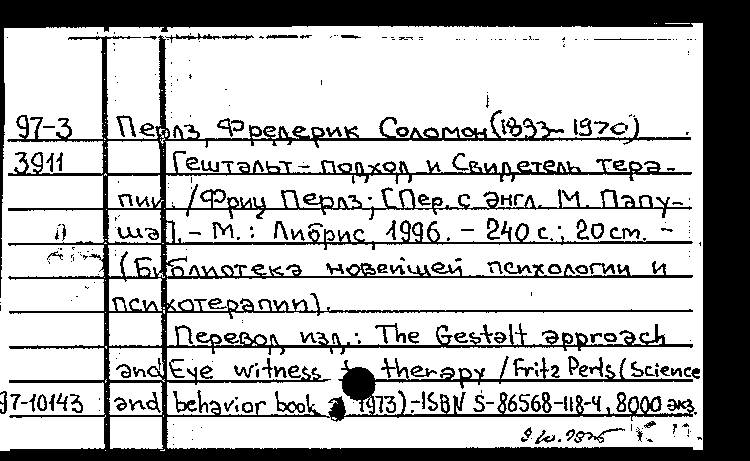 97-3 Перлз, Фредерик Соломон (1893-1970)
3911 Гештальт-подход и Свидетель тера-
пии. /Фриц Перлз; [Пер. с англ. М. Папу-
ша]. - М.: Либрис, 1996. - 240 с.; 20 cm. -
(Библиотека новейшей психологии и
психотерапии).
Перевод изд.: The Gestalt approach
and Eye witness therapy / Fritz Perls (Science
97-10143 and behavior book 1973). - ISBN 5-86568-118-4, 8000 экз.